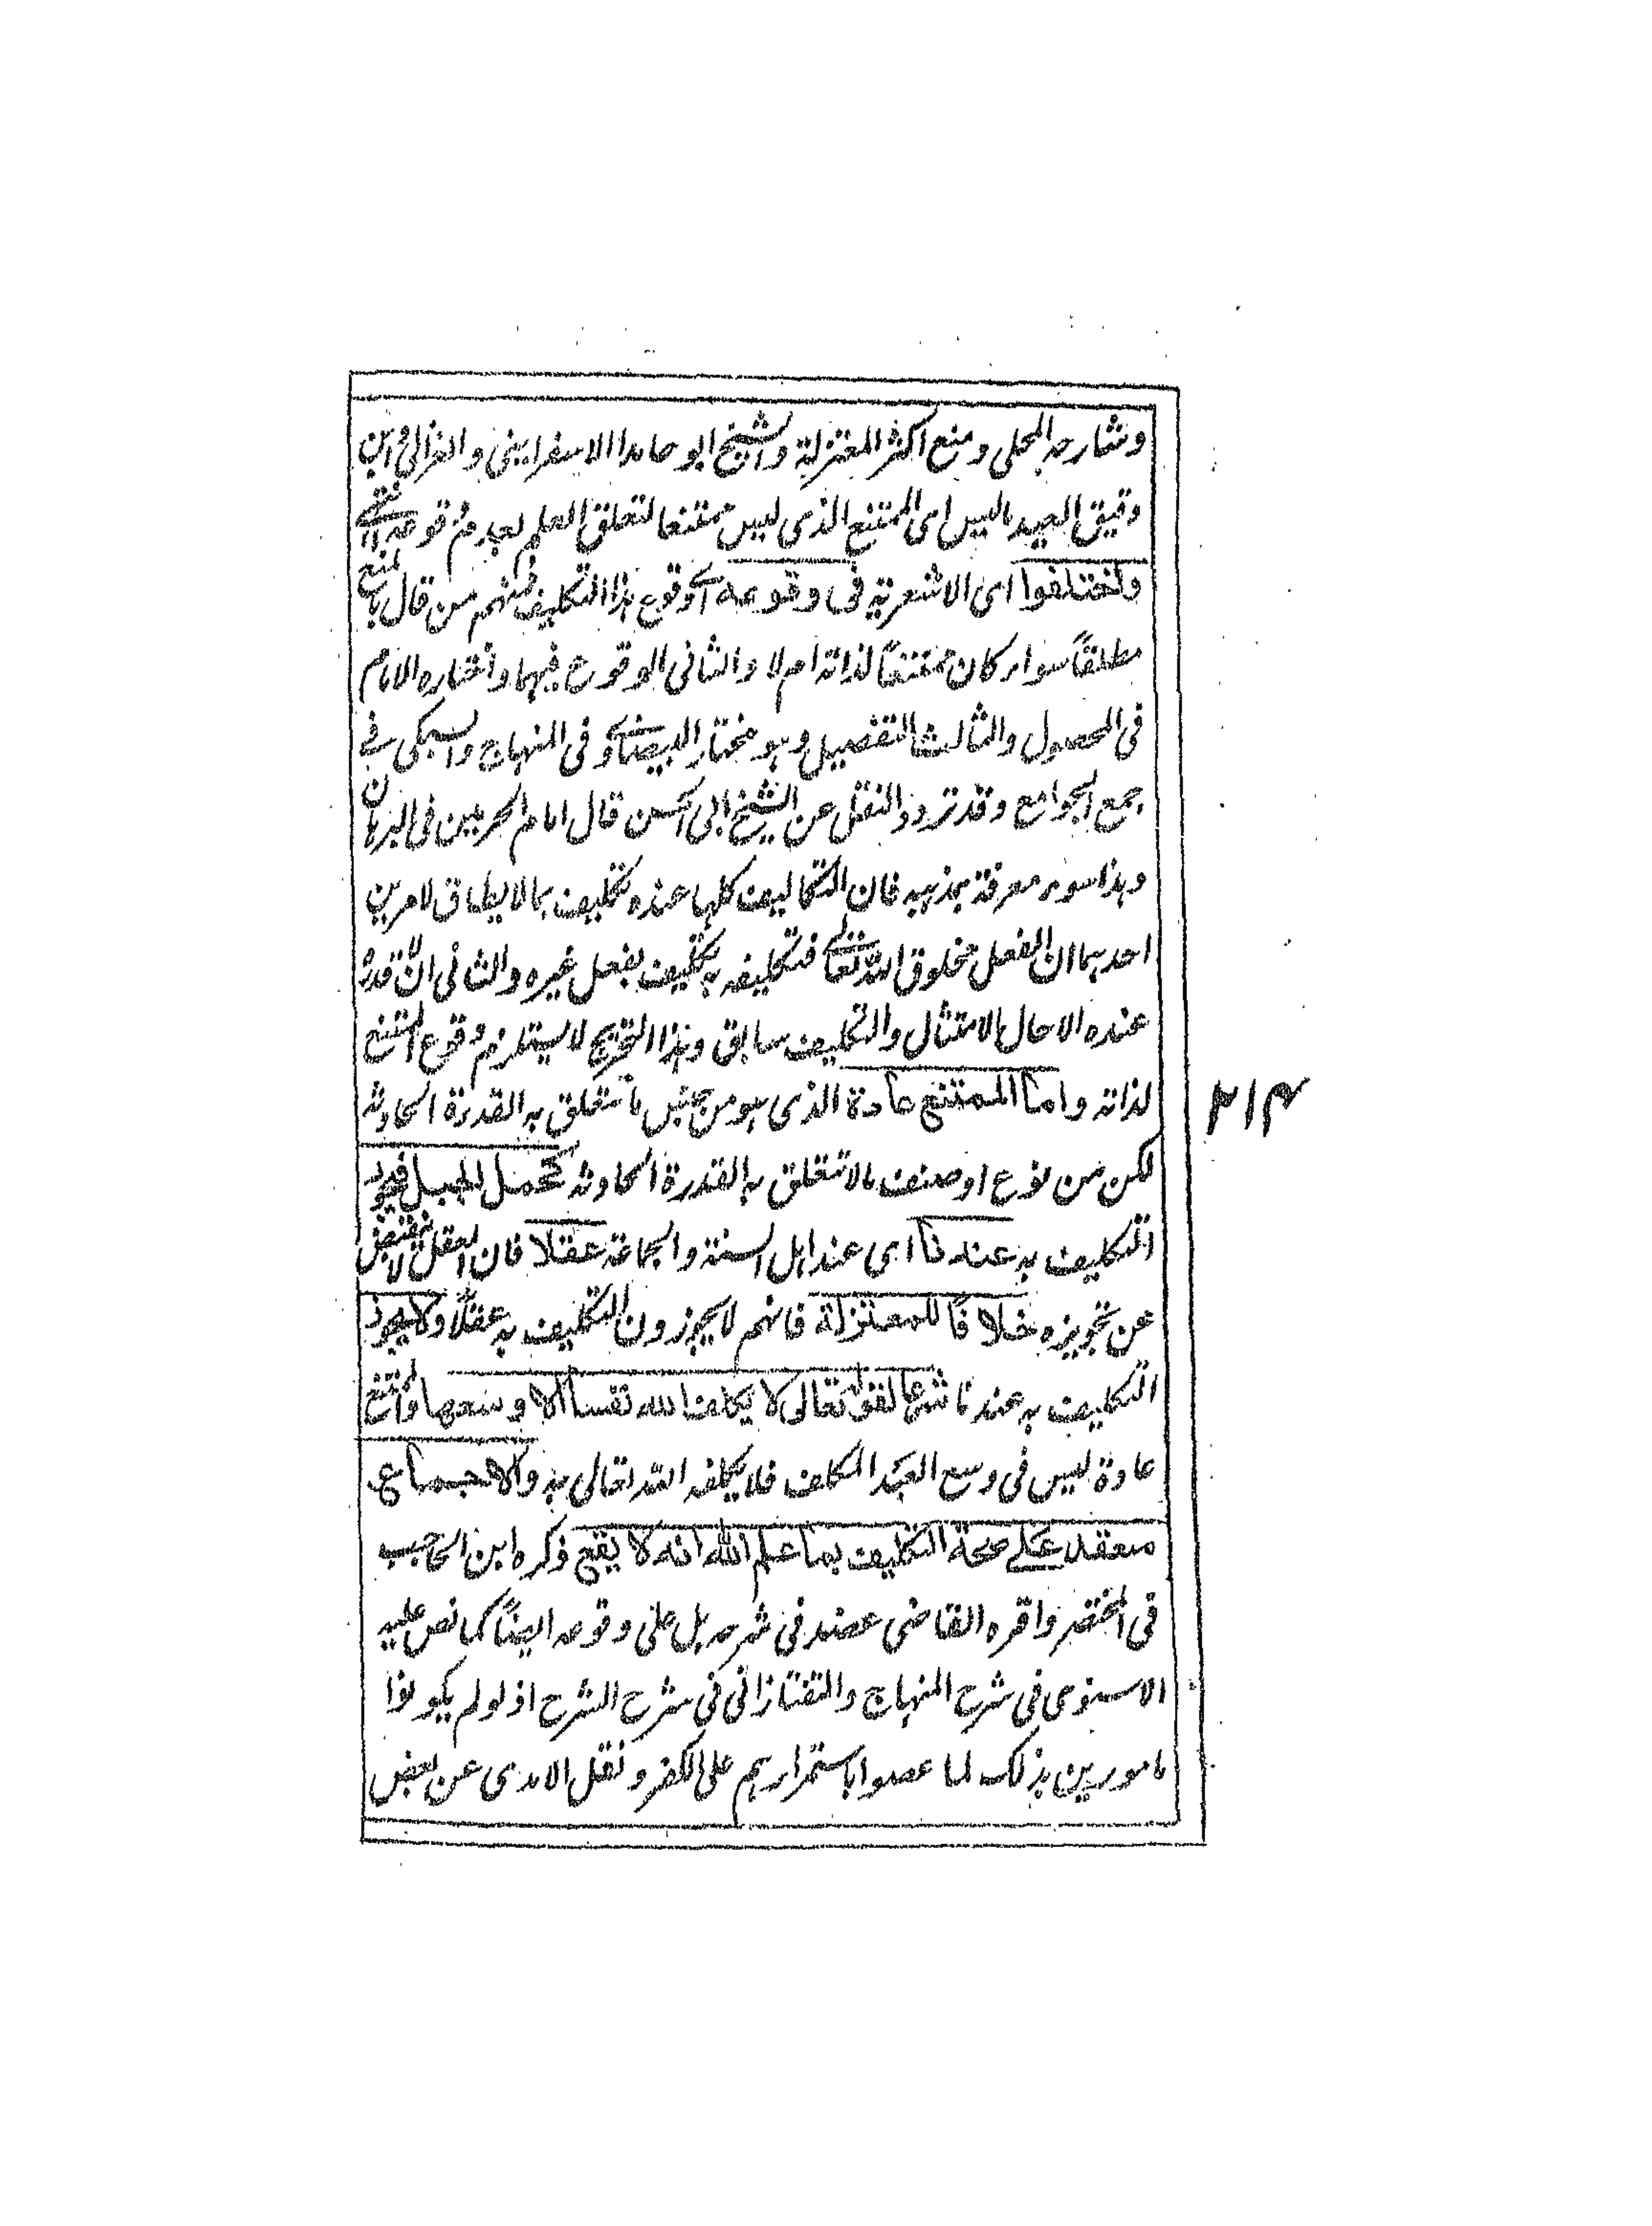 وشارحه المحلى ومنع اكثر المعتزلة والشيخ ابو حامد الاسفرايينى والغزالى وابن
دقيق العيد ما ليس اى الممتنع الذى ليس ممتنعا لتعلق العلم بعدم وقوعه انتهى
واختلفوا اى الاشعرية فى وقوعه اى وقوع هذا التكليف فمنهم من قال بالمنع
مطلقاً سواء كان ممتنعاً لذاته ام لا والثانى الوقوع فيهما واختاره الامام
فى المحصول والثالث التفصيل وهو مختار البيضاوى فى المنهاج والسبكى فى
جمع الجوامع وقد تردد النقل عن الشيخ ابى الحسن قال امام الحرمين فى البرهان
وهذا سوء معرفة بمذهبه فان التكاليف كلها عنده تكليف بما لا يطاق لامرين
احدهما ان الفعل مخلوق الله تعالى فتكليفه به تكليف بفعل غيره والثانى انه لا قدرة
عنده الا حال الامتثال والتكليف سابق وهذا التخريج لا يستلزم وقوع الممتنع
لذاته واما الممتنع عادة الذى هو من جنس ما تتعلق به القدرة الحادثه
لكن من نوع او صنف ما لا تتعلق به القدرة الحادثه كحمل الجبل فيجوز
التكليف به عندنا اى عند اهل السنة والجماعة عقلا فان العقل لا ينقبض
عن تجويزه خلافاً للمعتزلة فانهم لا يجوزون التكليف به عقلاً ولا يجوز
التكليف به عندنا شرعا لقوله تعالى لا يكلف الله نفسا الا وسعها والممتنع
عادة ليس فى وسع العبد المكلف فلا يكلفه الله تعالى به والاجماع
منعقد على صحة التكليف بما علم الله انه لا يقع ذكره ابن الحاجب
فى المختصر واقره القاضى عضد فى شرحه بل على وقوعه ايضاً كما نص عليه
الاسنوى فى شرح المنهاج والتفتازانى فى شرح الشرح اذ لو لم يكونوا
مامورين بذلك لما عصوا باستمرارهم على الكفر ونقل الامدى عن بعض
۲۱۴